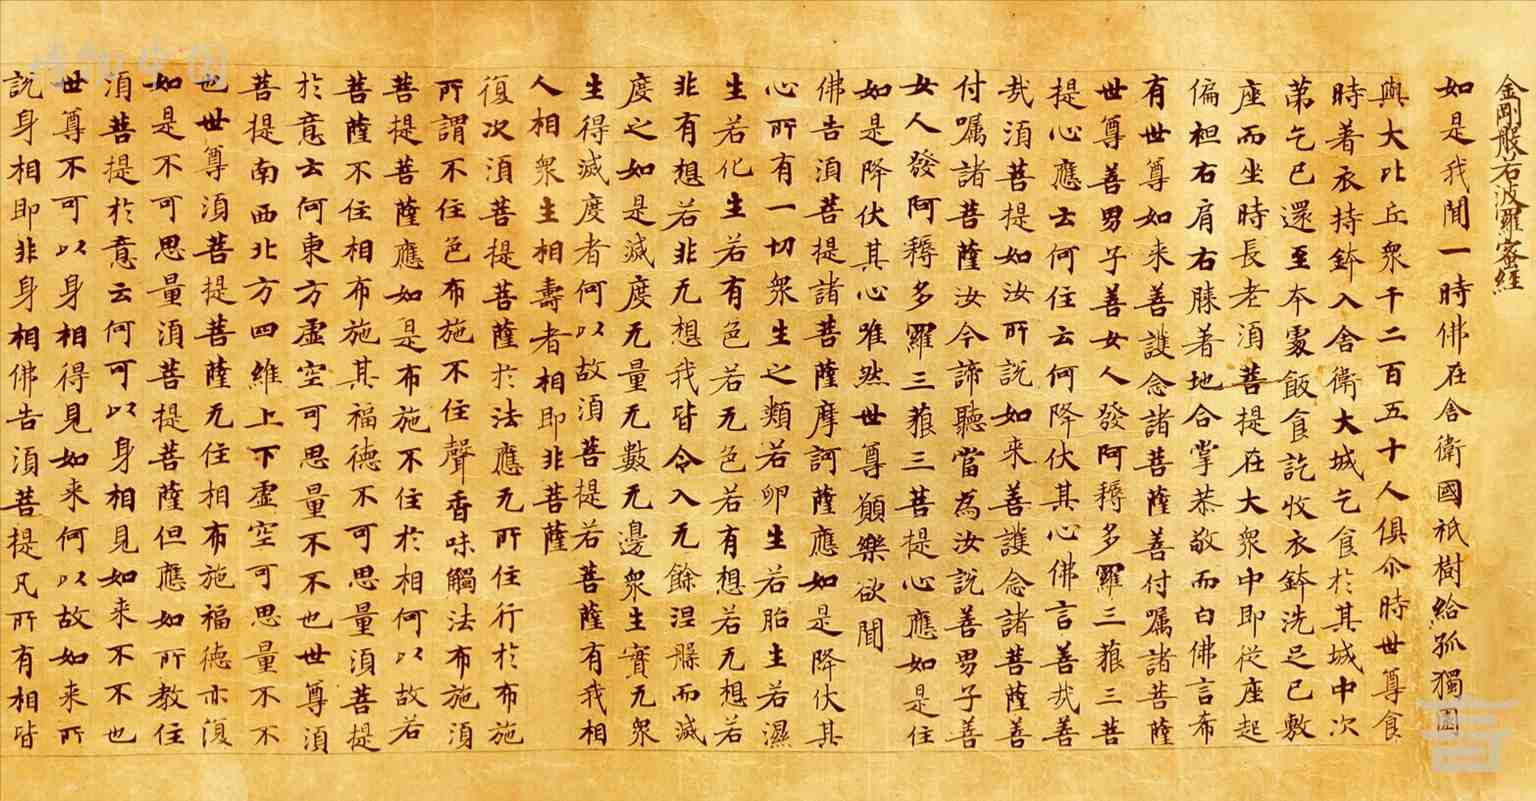 金剛般若波羅蜜經
如是我聞一時佛在舍衛國祇樹給孤獨園
與大比丘衆千二百五十人俱尒時世尊食
時著衣持鉢入舍衛大城乞食於其城中次
第乞已還至本處飯食訖收衣鉢洗足已敷
座而坐時長老湏菩提在大衆中即從座起
偏袒右肩右膝著地合掌恭敬而白佛言希
有世尊如来善護念諸菩薩善付囑諸菩薩
世尊善男子善女人發阿耨多羅三藐三菩
提心應云何住云何降伏其心佛言善哉善
哉湏菩提如汝所說如来善護念諸菩薩善
付囑諸菩薩汝今諦聽當為汝說善男子善
女人發阿耨多羅三藐三菩提心應如是住
如是降伏其心唯然世尊願樂欲聞
佛告湏菩提諸菩薩摩訶薩應如是降伏其
心所有一切衆生之類若卵生若胎生若濕
生若化生若有色若无色若有想若无想若
非有想若非无想我皆令入无餘涅槃而滅
度之如是滅度无量无數无邊衆生實无衆
生得滅度者何以故湏菩提若菩薩有我相
人相衆生相壽者相即非菩薩
復次湏菩提菩薩於法應无所住行於布施
所謂不住色布施不住聲香味觸法布施湏
菩提菩薩應如是布施不住於相何以故若
菩薩不住相布施其福德不可思量湏菩提
於意云何東方虛空可思量不不也世尊湏
菩提南西北方四維上下虛空可思量不不
也世尊湏菩提菩薩无住相布施福德亦復
如是不可思量湏菩提菩薩但應如所教住
湏菩提於意云何可以身相見如来不不也
世尊不可以身相得見如来何以故如来所
說身相即非身相佛告湏菩提凡所有相皆
言